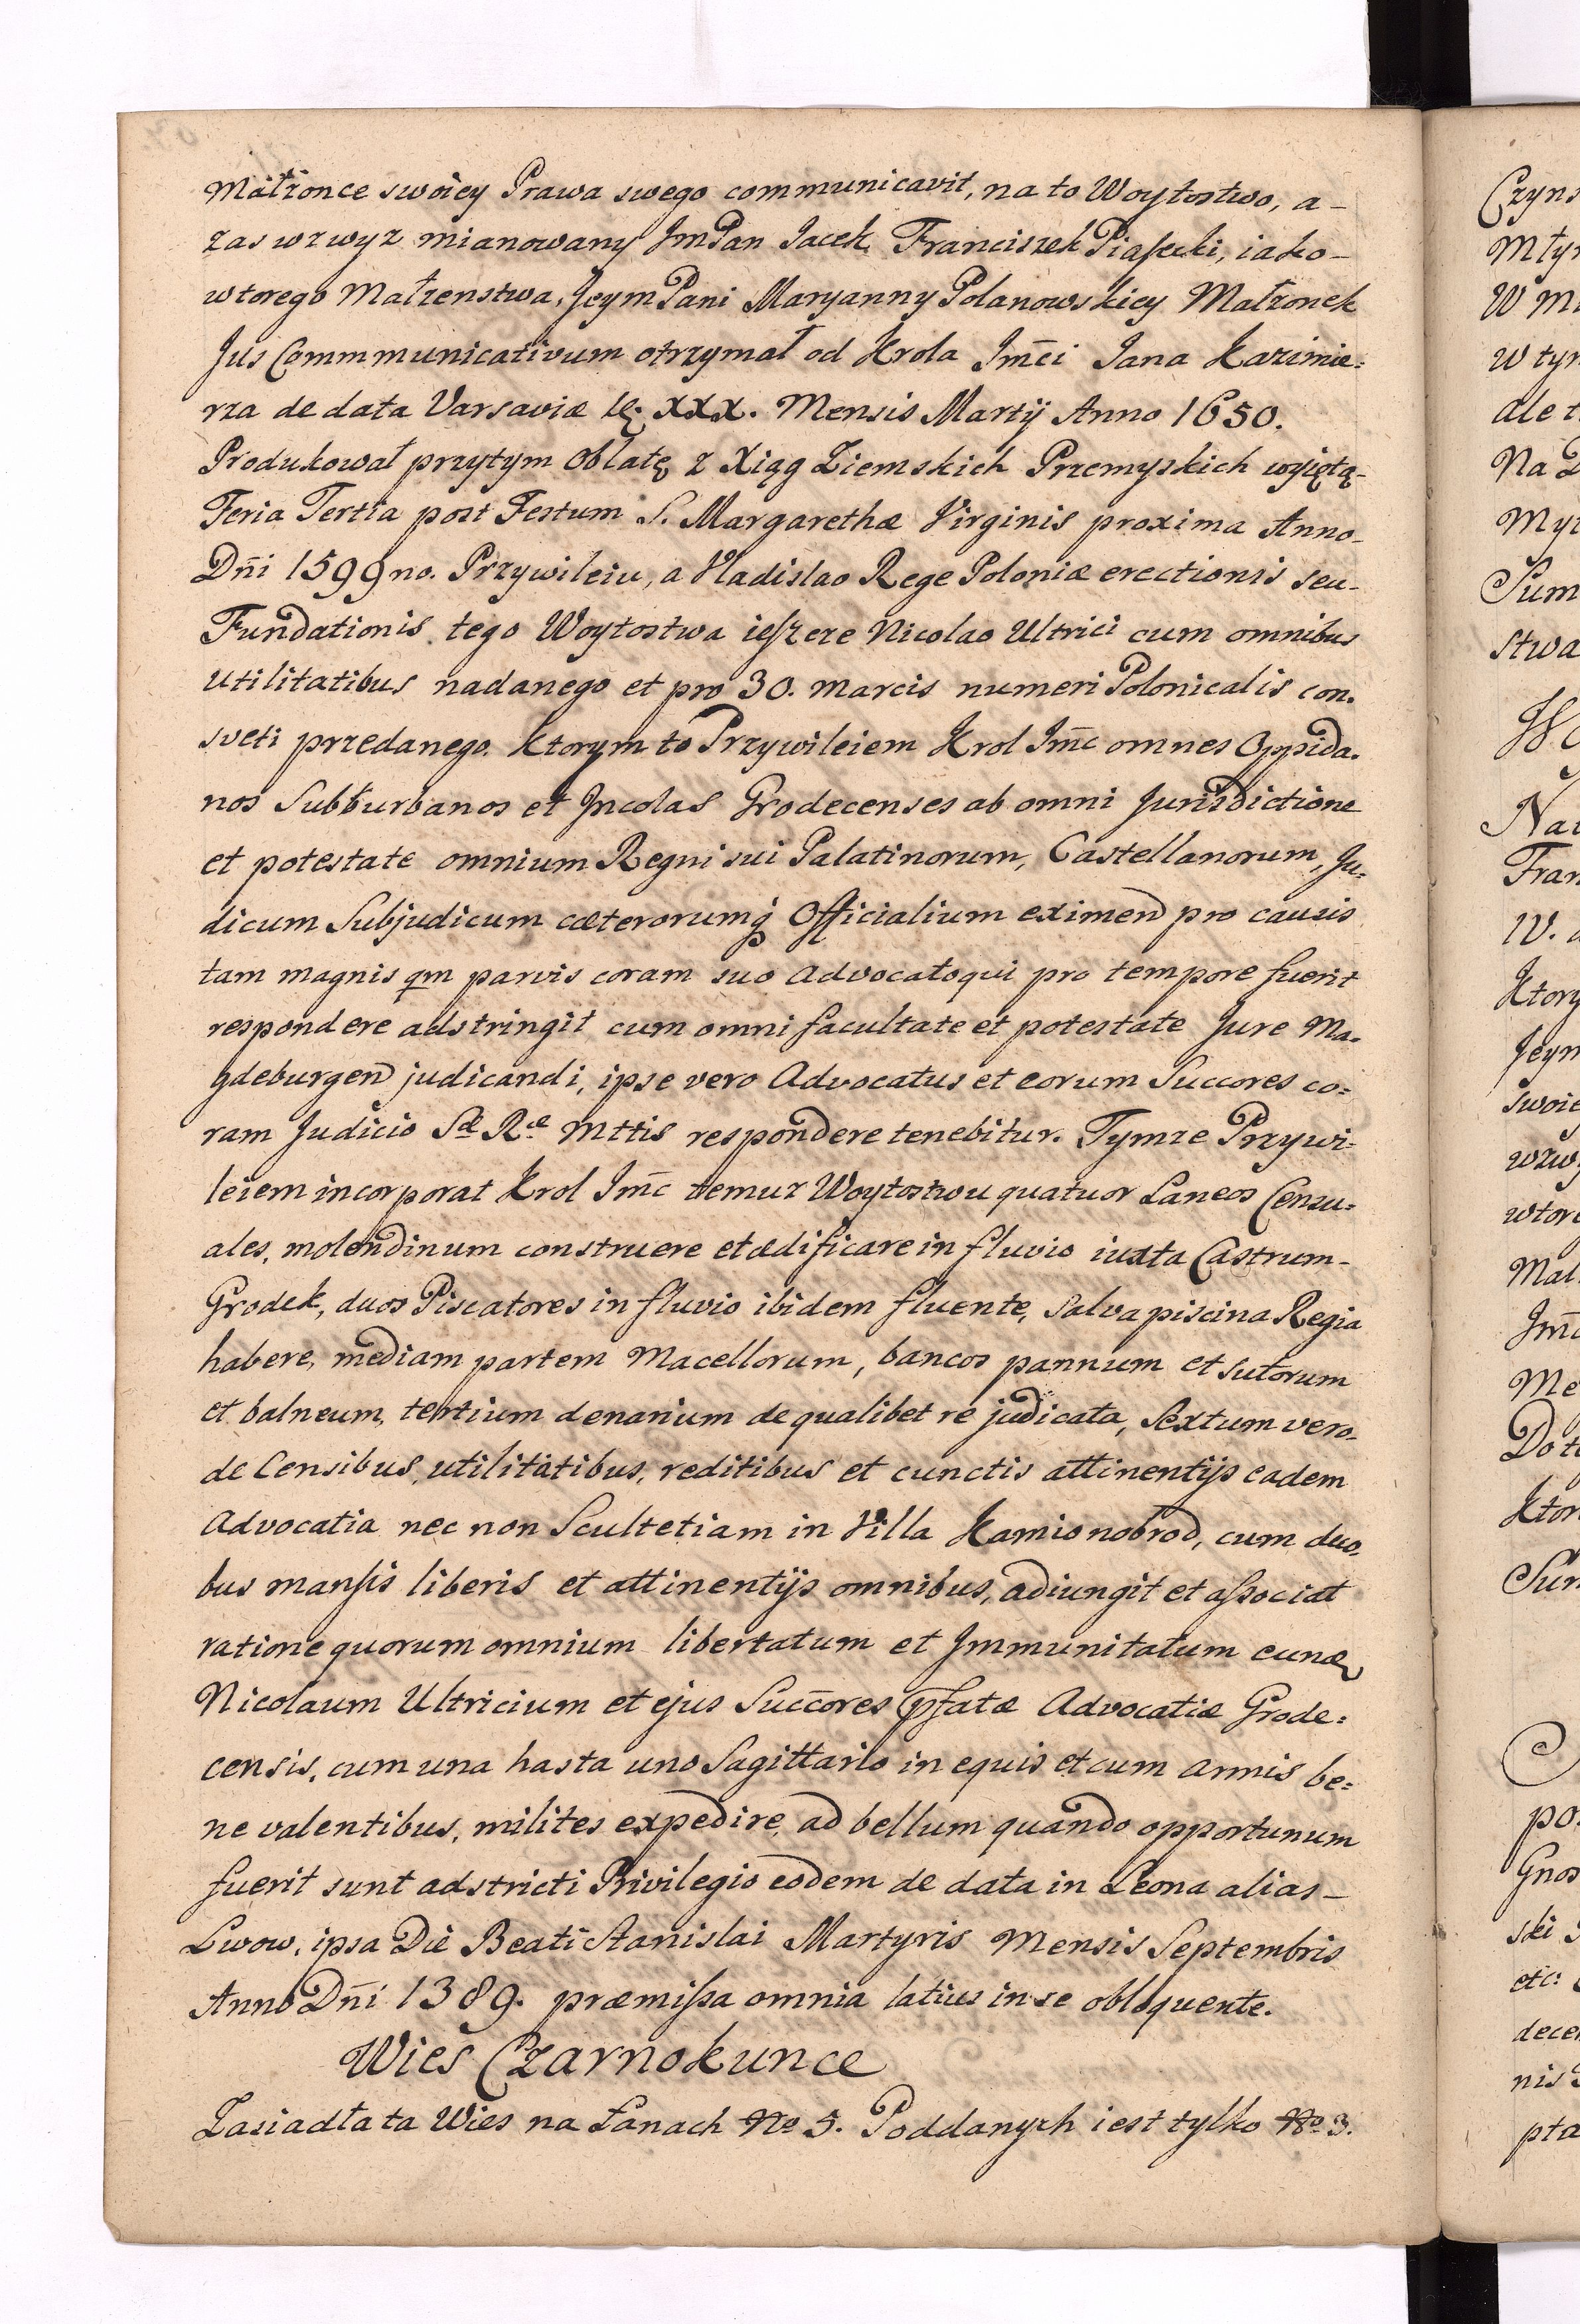 Małzonce swoiey Prawa swego communicavit, na to Woytostwo, a-
zas wzwyz mianowany JmPan Jacek Franciszek Piasecki, iako-
wtorego Małzenstwa, JeymPani Maryanny Polanowskiey Małzonek
Jus Commmunicativum otrzymał od Krola Jmci Jana Kazimie=
rza de data Varsaviæ XXX. Mensis Martij Anno 1650.
Produkował przytym oblatę z Xiąg Ziemskich Przemyskich wyiętą-
Feria Tertia post Festum S. Margarethæ Virginis proxima Anno-
Dn̄i 1599no. Przywileiu, a Vladislao Rege Poloniæ erectionis seu-
Fundationis tego Woytostwa ieszeze Nicolao Ultrici cum omnibus
utilitatibus nadanego et pro 30. marcis numeri Polonicalis con.
sveti przedanego. Ktorym to Przywileiem Krol Jm̄c omnes Oppida.
nos Subburbanos et Incolas Grodecenses ab omni Jurisdictione
et potestate omnium Regni sui Palatinorum, Castellanorum, Ju=
dicum Subjudicum cæterorumq́ Officialium eximend pro causis
tam magnis qm parvis coram suo Advocato qui pro tempore fuerit
respondere adstringit cum omni facultate et potestate Jure Ma=
gdeburgen judicandi, ipse vero Advocatus et eorum Succores co=
ram Judicio Sæ Ræ Mttis respondere tenebitur. Tymze Przywi=
leiem incorporat Krol Jm̄c temuz Woytostwu quatuor Laneos Censu=
ales, molendinum construere et ædificare in fluvio iuxta Castrum-
Grodek, duos Piscatores in fluvio ibidem fluente, Salva piscina Regia
habere, mediam partem Macellorum, bancos pannum et sutorum
et balneum, tertium denarium de qualibet re judicata, Sextum vero-
de Censibus, utilitatibus, reditibus et cunctis attinentijs eadem
Advocatia nec non Scultetiam in Villa Kamionobrod, cum duo.
bus mansis liberis et attinentijs omnibus, adiungit et associat
ratione quorum omnium libertatum et Immunitatum eund
Nicolaum Ultricium et ejus Succ̄ores p̄fatæ Advocatiæ Grode=
censis, cum una hasta uno Sagittario in equis et cum armis be=
ne valentibus, milites expedire, ad bellum quando opportunum
fuerit sunt adstricti Privilegio eodem de data in Leona alias-
Lwow, ipsa Die Beati Stanislai Martyris Mensis Septembris
Anno Dn̄i 1389. præmissa omnia latius in se obloquente.
Wies Czarnokunce
Zasiadła ta Wies na Łanach No 5. Poddanych iest tylko No 3.
Czyns
Młyn
Na
Sum
stwa
Fran
IV.
Ktory
Jeym
swoie
wtor
Mał
Me
po.
Gnos
ski
etc:
nis
pta